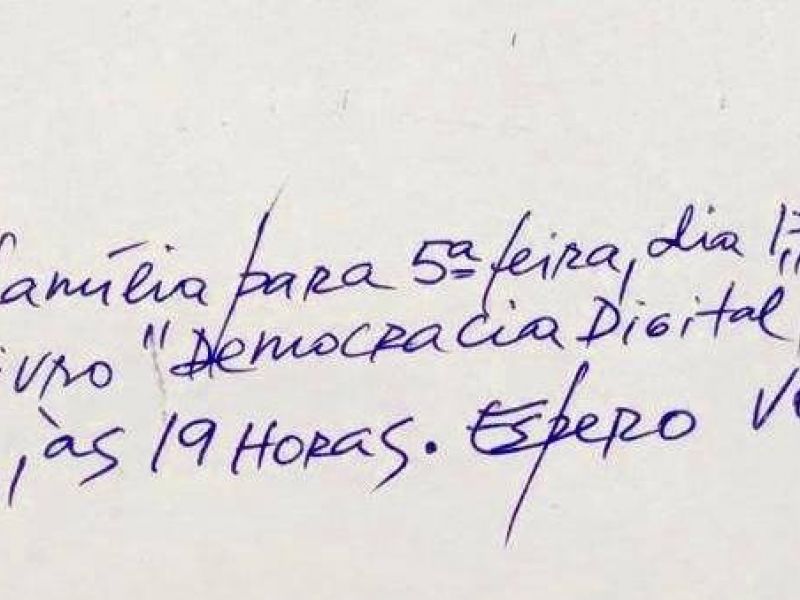 família para 5ª feira, dia 17,
livro "Democracia Digital
, às 19 HORAS. Espero